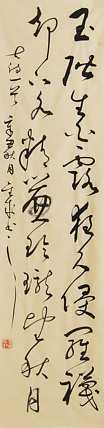 玉階生白露夜久侵羅襪
却下水精簾玲瓏望秋月
詩一首 辛丑秋月